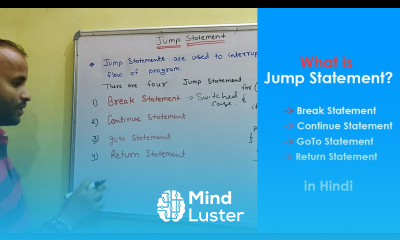 Jump Statement
Jump Statements are used to interrup
flow of program.
There are four Jump Statement
for (
1) Break Statement → Switched
case {
2) Continue Statement
3) goto Statement
4) Return Statement
What is
Jump Statement?
-> Break Statement
-> Continue Statement
-> GoTo Statement
-> Return Statement
in Hindi
Mind
Luster